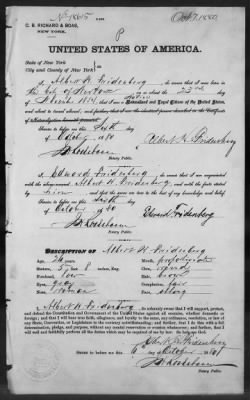 No 18615
Oct 7. 1880
C. B. RICHARD & BOAS,
NEW YORK.
UNITED STATES OF AMERICA.
State of New York
City and County of New York
I, Albert H. Fridenberg, do swear that I was born in
the City of New York on or about the 23rd day
of
that I am a Native and Loyal Citizen of the United States,
and about to travel abroad,
Sworn to before me this Sixth
day of October 1880
Albert H. Fridenberg
Notary Public.
I, Edward Fridenberg, do swear that I am acquainted
with the above-named Albert H. Fridenberg, and with the facts stated
by him and that the same are true to the best of my knowledge and belief.
Sworn to before me this Sixth
day of October 1880
Edward Fridenberg
Notary Public.
DESCRIPTION OF Albert H. Fridenberg
Age, 26 years
Mouth,
Stature, 5 feet 8 inches, Eng.
Chin,
Forehead, low
Hair, brown
Eyes, gray
Complexion, fair
Nose,
Face,
I, Albert H. Fridenberg do solemnly swear that I will support, protect,
and defend the Constitution and Government of the United States against all enemies, whether domestic or
foreign; and that I will bear true faith, allegiance, and loyalty to the same, any ordinance, resolution, or law of
any State, Convention, or Legislature to the contrary notwithstanding; and further, that I do this with a full
determination, pledge, and purpose, without any mental reservation or evasion whatsoever; and further, that I
will well and faithfully perform all the duties which may be required of me by law. So help me God.
Albert H. Fridenberg
Sworn to before me this
6 day of October 1880
Notary Public.